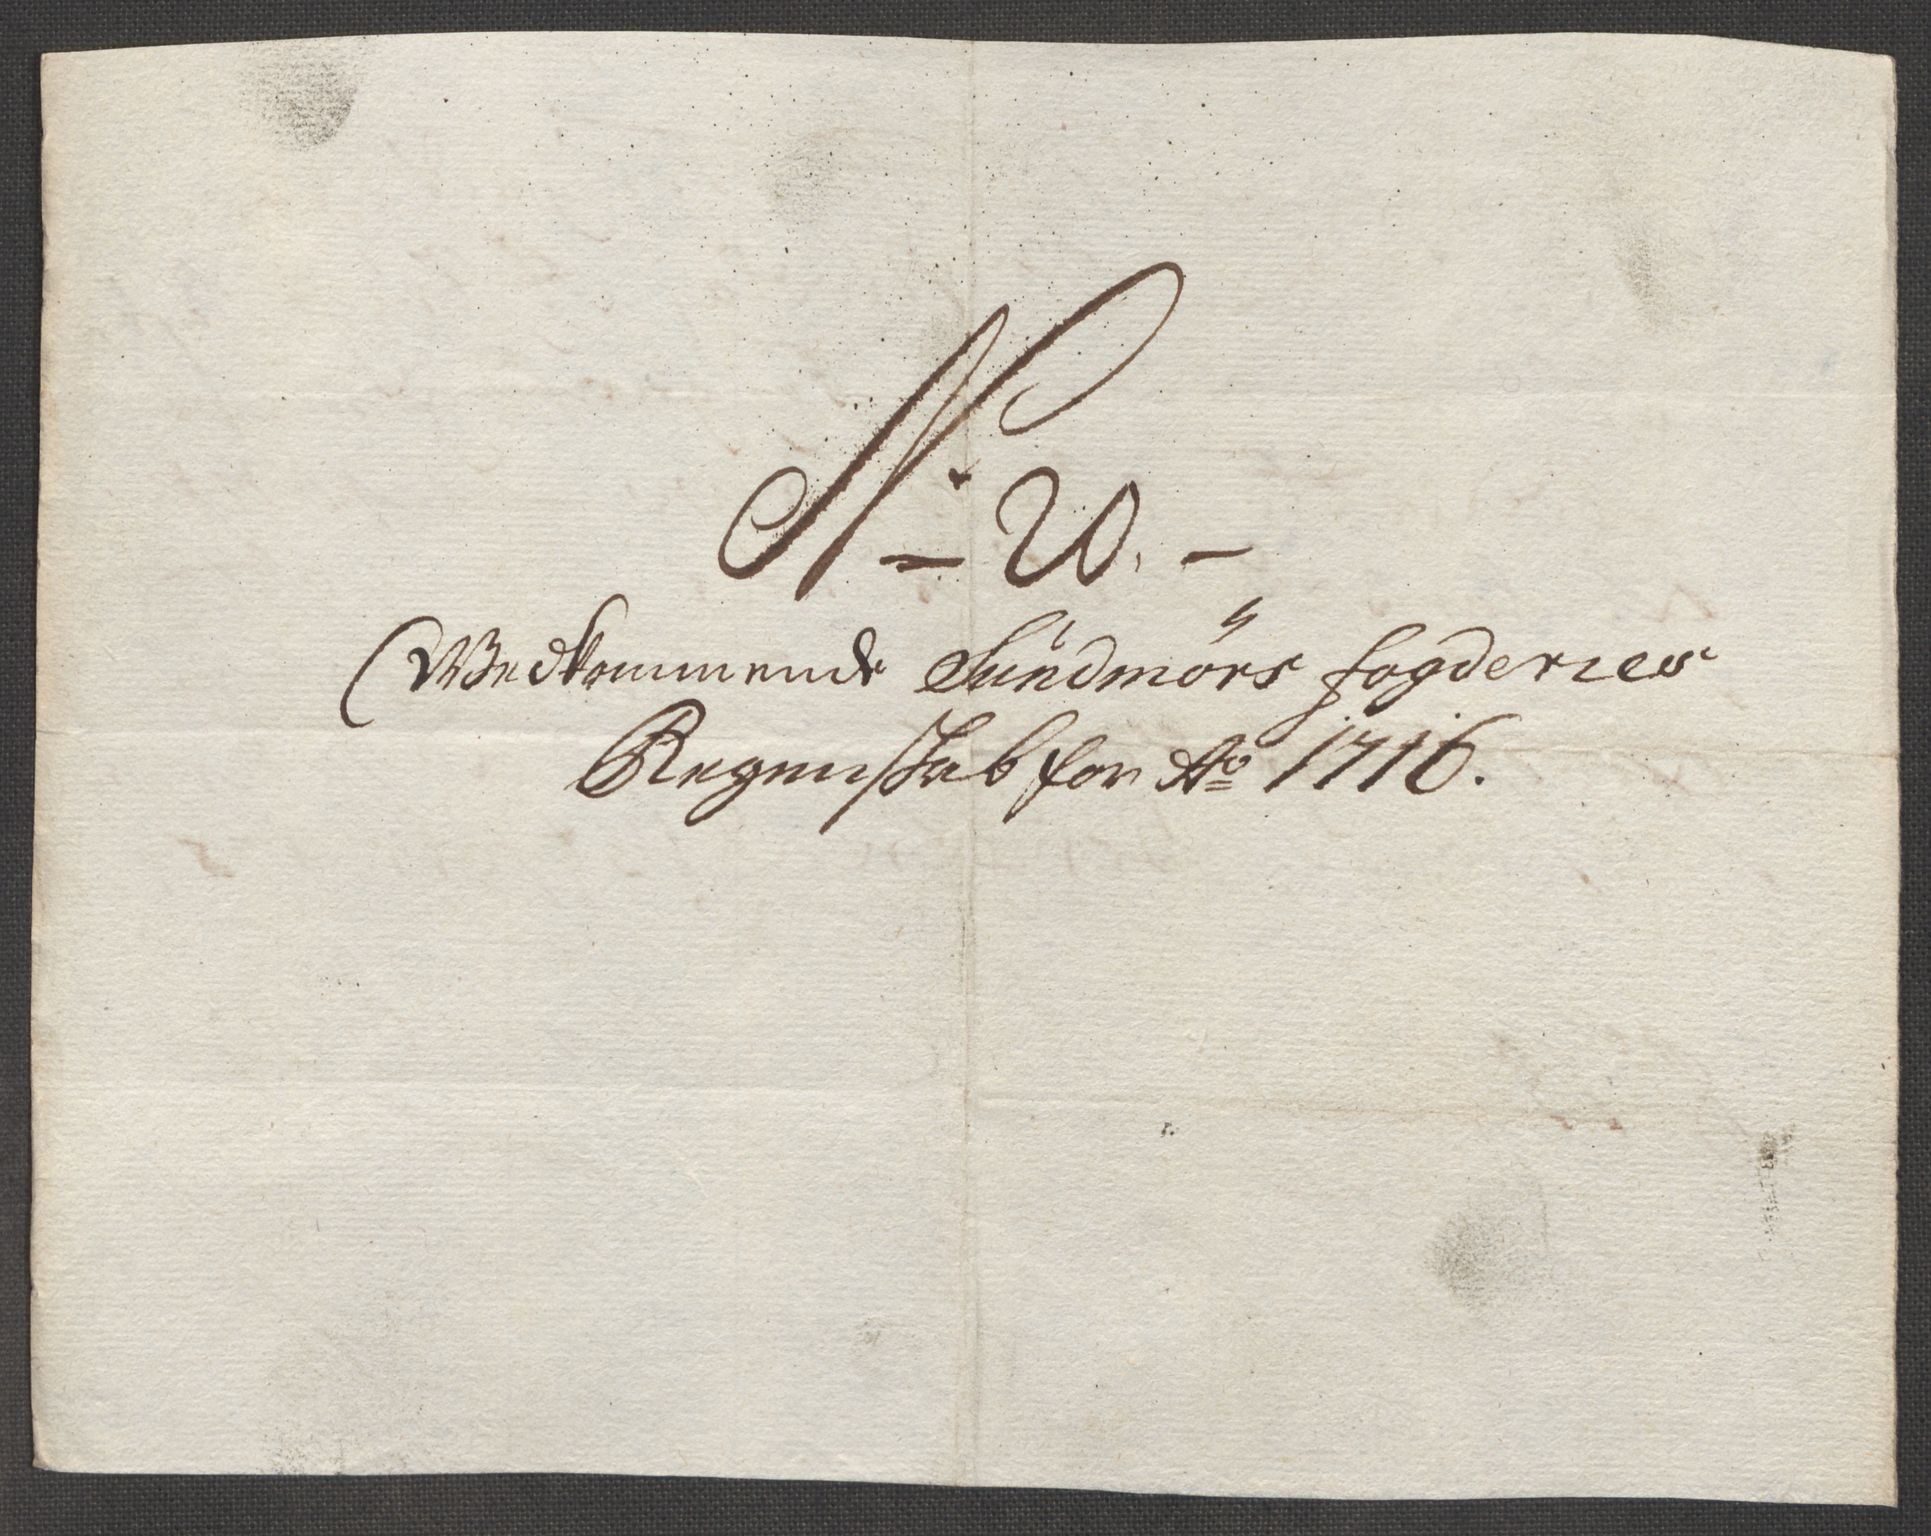 N: W. -
Wedkommende Sundmörs fogderies
Regenskab for Ao 1716.